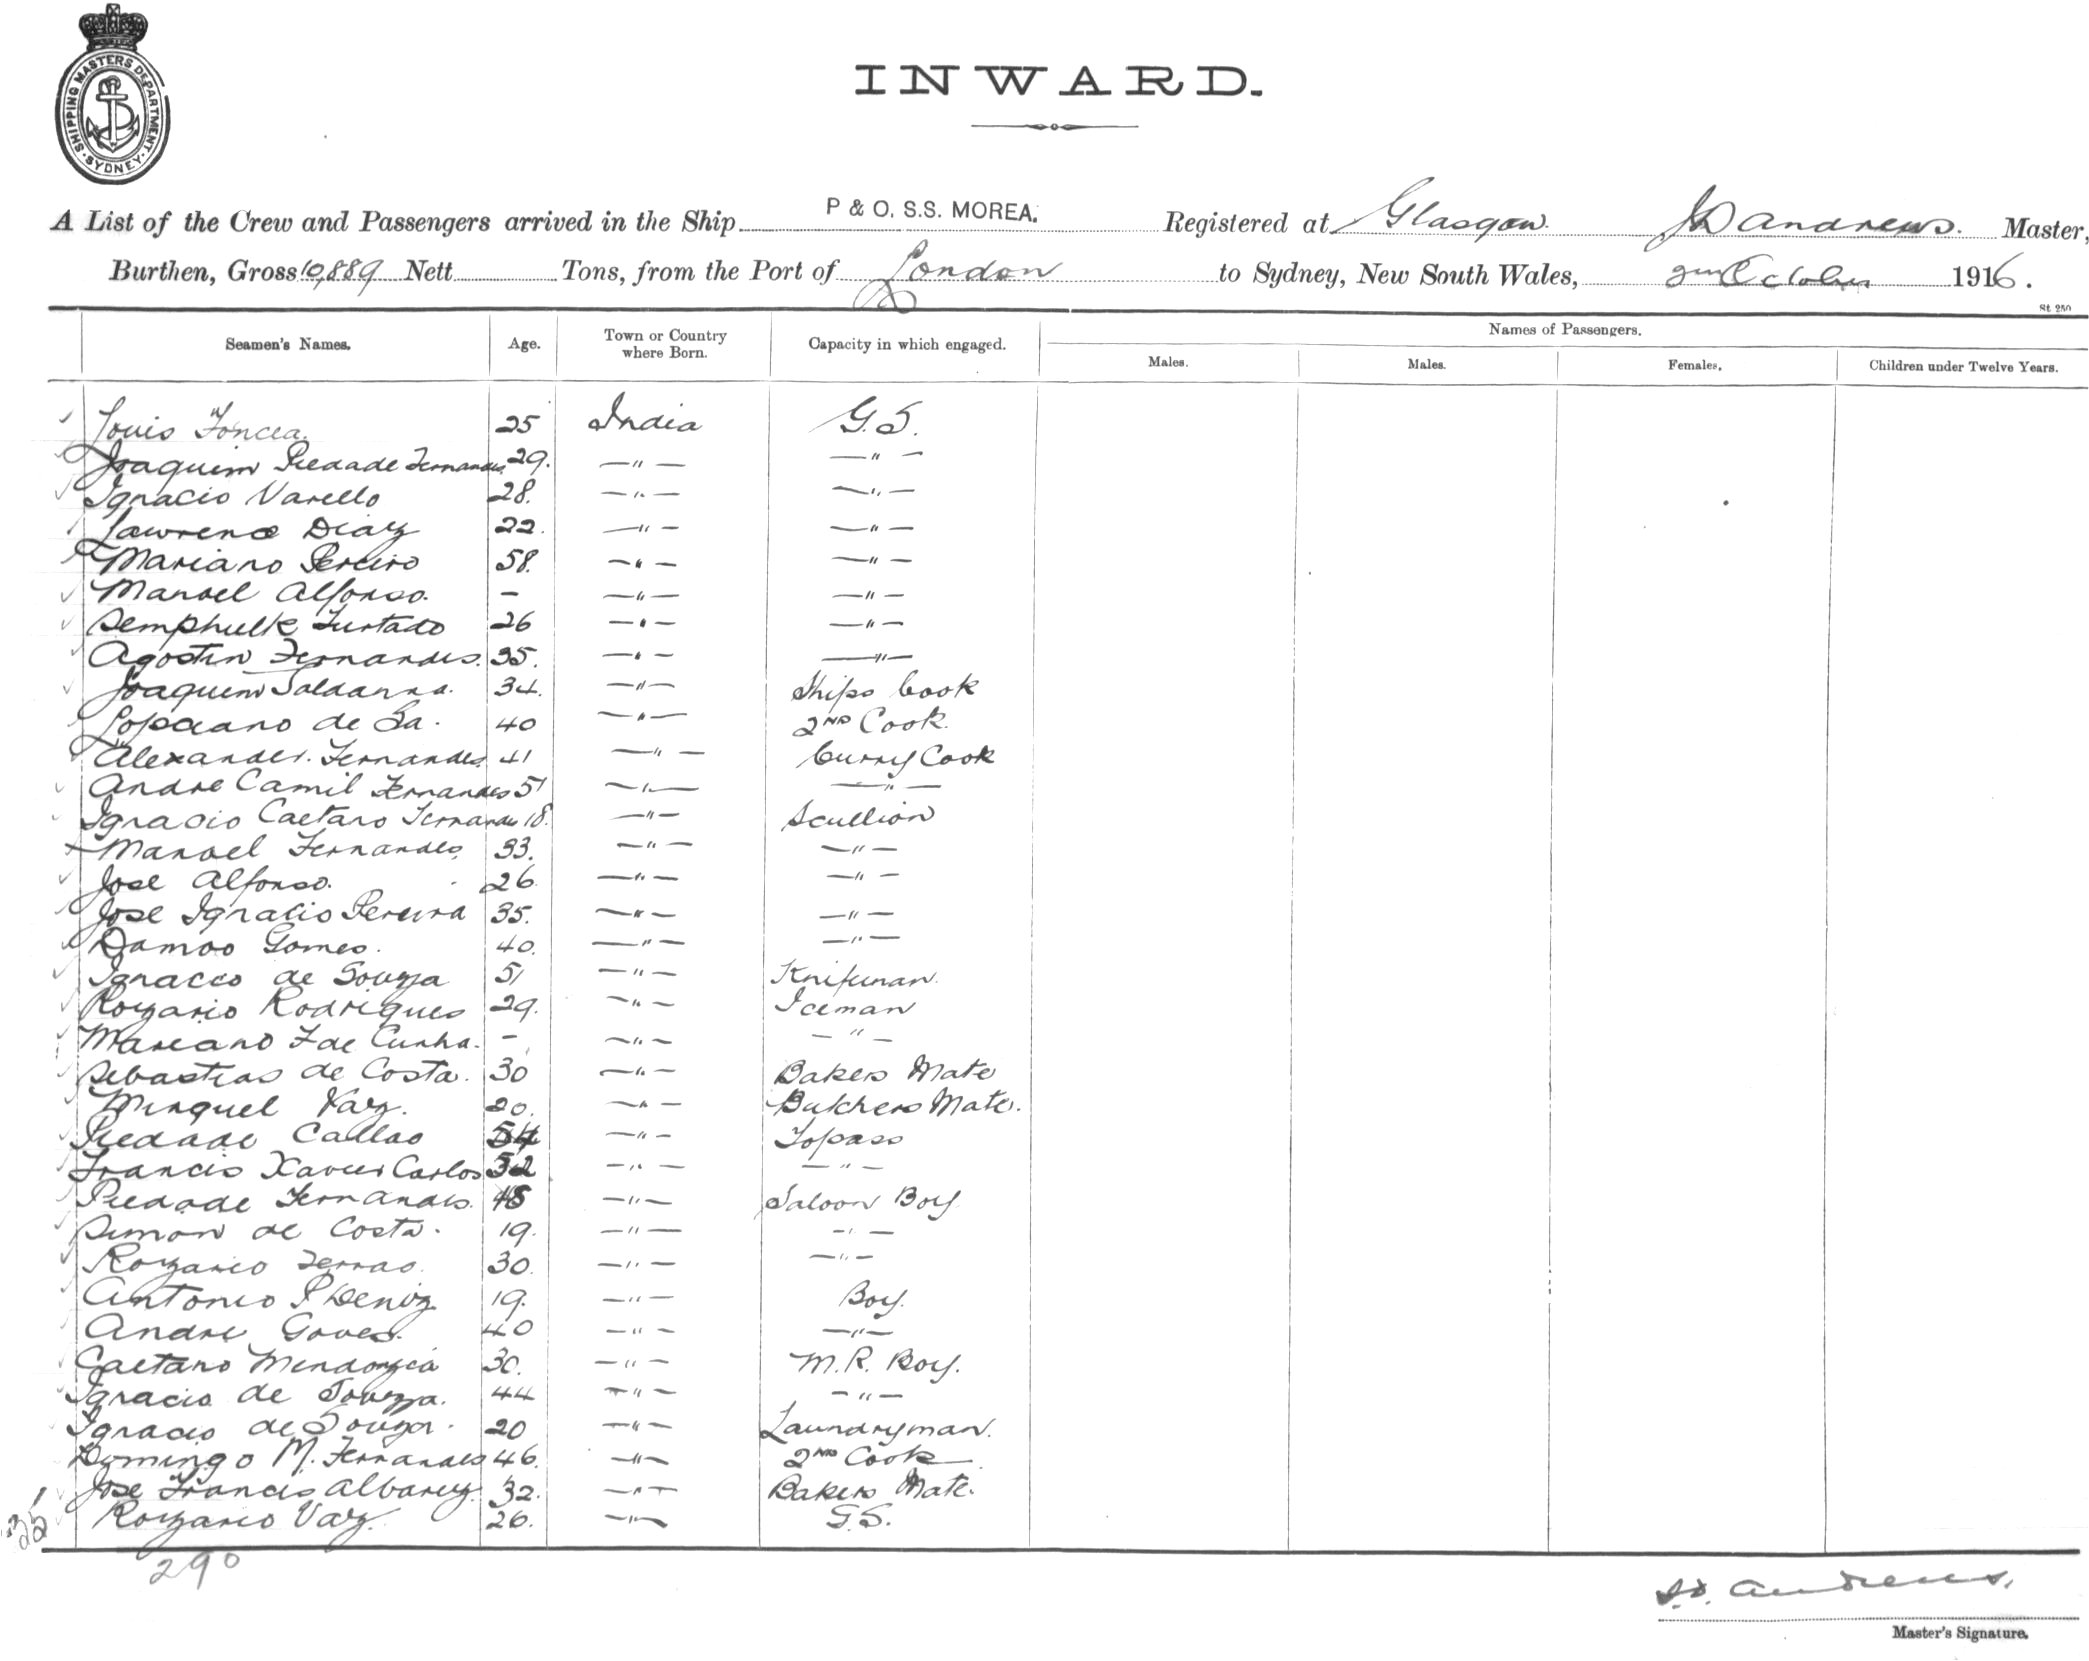 SHIPPING MASTERS DEPARTMENT
SYDNEY
INWARD.
A List of the Crew and Passengers arrived in the Ship P & O. S.S. MOREA. Registered at Glasgow. Andrews. Master,
Burthen, Gross 10,889 Nett Tons, from the Port of London to Sydney, New South Wales, 2nd October 1916.
St. 250
Seamen's Names. Age. Town or Country where Born. Capacity in which engaged. Names of Passengers.
Males. Males. Females. Children under Twelve Years.
Louis Foncea. 25 India G.S.
Joaquim Piedade Fernandes 29. — " — — " —
Ignacio Varello 28. — " — — " —
Lawrence Diaz 22. — " — — " —
Mariano Pereiro 58. — " — — " —
Manoel Alfonso. – — " — — " —
Furtado 26 — " — — " —
Agostin Fernandes. 35. — " — — " —
Joaquim Saldanna. 34. — " — Ships Cook
de Sa. 40 — " — 2ND Cook.
Alexander. Fernandes 41 — " — Curry Cook
Andre Camil Fernandes 51 — " — — " —
Ignacio Caetano Fernandes 18. — " — Scullion
Manoel Fernandes 33. — " — — " —
Jose Alfonso. 26 — " — — " —
Jose Ignacio Pereira 35. — " — — " —
Damao Gomes. 40. — " — — " —
Ignacio de Souza 51 — " — Knifeman.
Rozario Rodrigues 29. — " — Iceman
Mareano F de Cunha. – — " — — " —
Sebastiao de Costa. 30 — " — Bakers Mate
Minquel Vaz. 20. — " — Butchers Mate.
Piedade Callao 54 — " — Topass
Francis Xavier Carlos 52 — " — — " —
Piedade Fernandes. 48 — " — Saloon Boy
Simon de Costa. 19. — " — — " —
Rozario Ferrao. 30. — " — — " —
Antonio P Deniz 19. — " — Boy.
Andre Goves. 40 — " — — " —
Caetano Mendonca 30. — " — M.R. Boy.
Ignacio de Souza. 44 — " — — " —
Ignacio de Souza. 20 — " — Laundryman.
Domingo M. Fernandes 46. — " — 2ND Cook
Jose Francis Albarez. 32. — " — Bakers Mate.
35 Rozario Vaz. 26. — " — G.S.
290
Andrews.
Master's Signature.